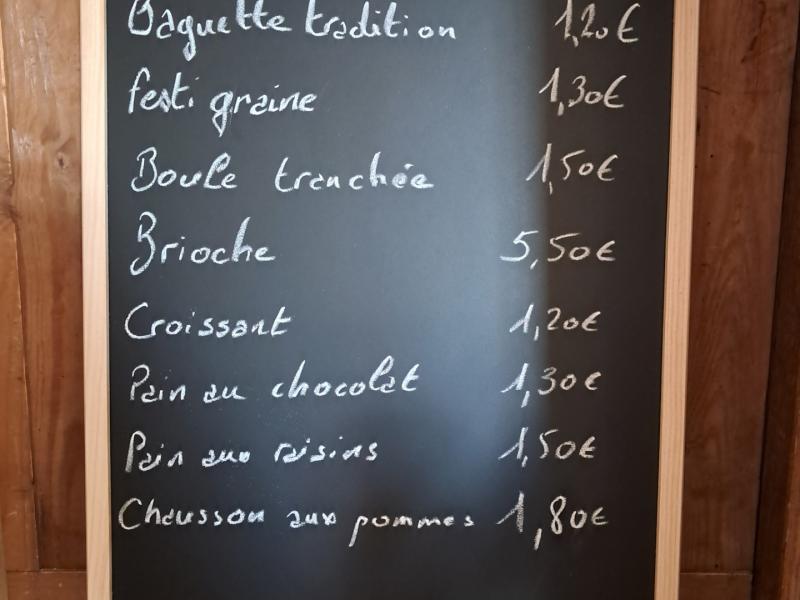 Baguette tradition 1,20€
festi graine 1,30€
Boule tranchée 1,50€
Brioche 5,50€
Croissant 1,20€
Pain au chocolat 1,30€
Pain aux raisins 1,50€
Chausson aux pommes 1,80€